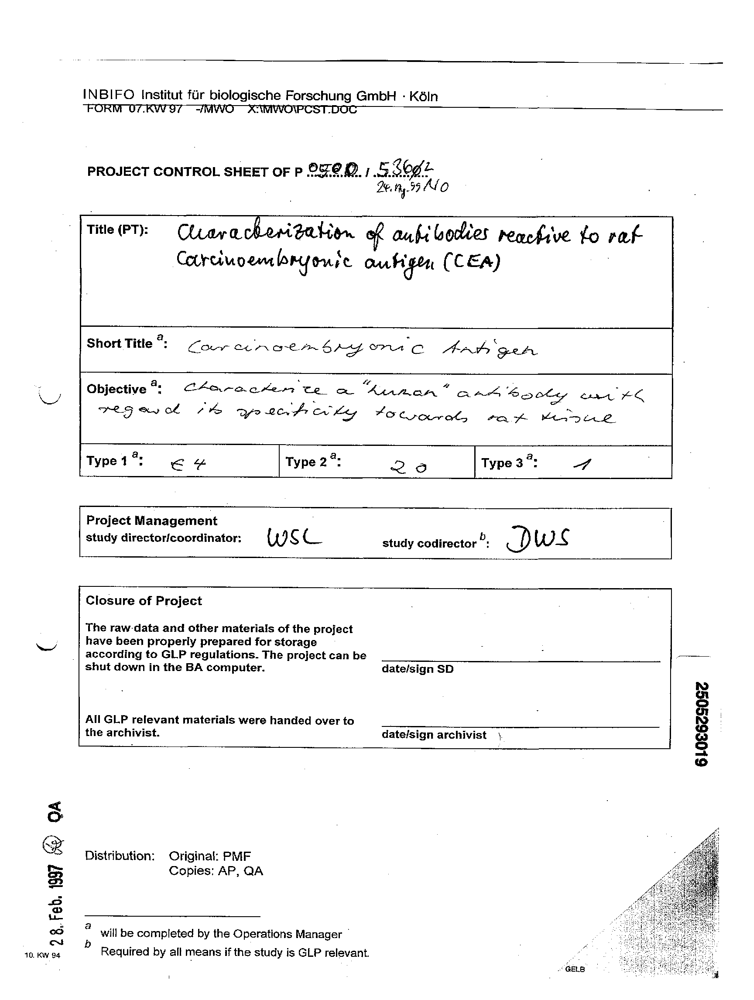 INBIFO Institut für biologische Forschung GmbH · Köln
FORM 07.KW 97 -/MWO X:\MWO\PCST.DOC
PROJECT CONTROL SHEET OF P 0500 /
Title (PT): Characterization of antibodies reactive to rat
Carcinoembryonic antigen (CEA)
Short Title a: Carcinoembryonic Antigen
Objective a: Characterize a "human" antibody with
regard its specificity towards rat tissue
Type 1 a: E4 Type 2 a: 20 Type 3 a: 1
Project Management
study director/coordinator: WSL study codirector b: DWS
Closure of Project
The raw data and other materials of the project
have been properly prepared for storage
according to GLP regulations. The project can be
shut down in the BA computer. date/sign SD
All GLP relevant materials were handed over to
the archivist. date/sign archivist
2505293019
28. Feb. 1997 QA
Distribution: Original: PMF
Copies: AP, QA
a will be completed by the Operations Manager
b Required by all means if the study is GLP relevant.
10. KW 94
GELB